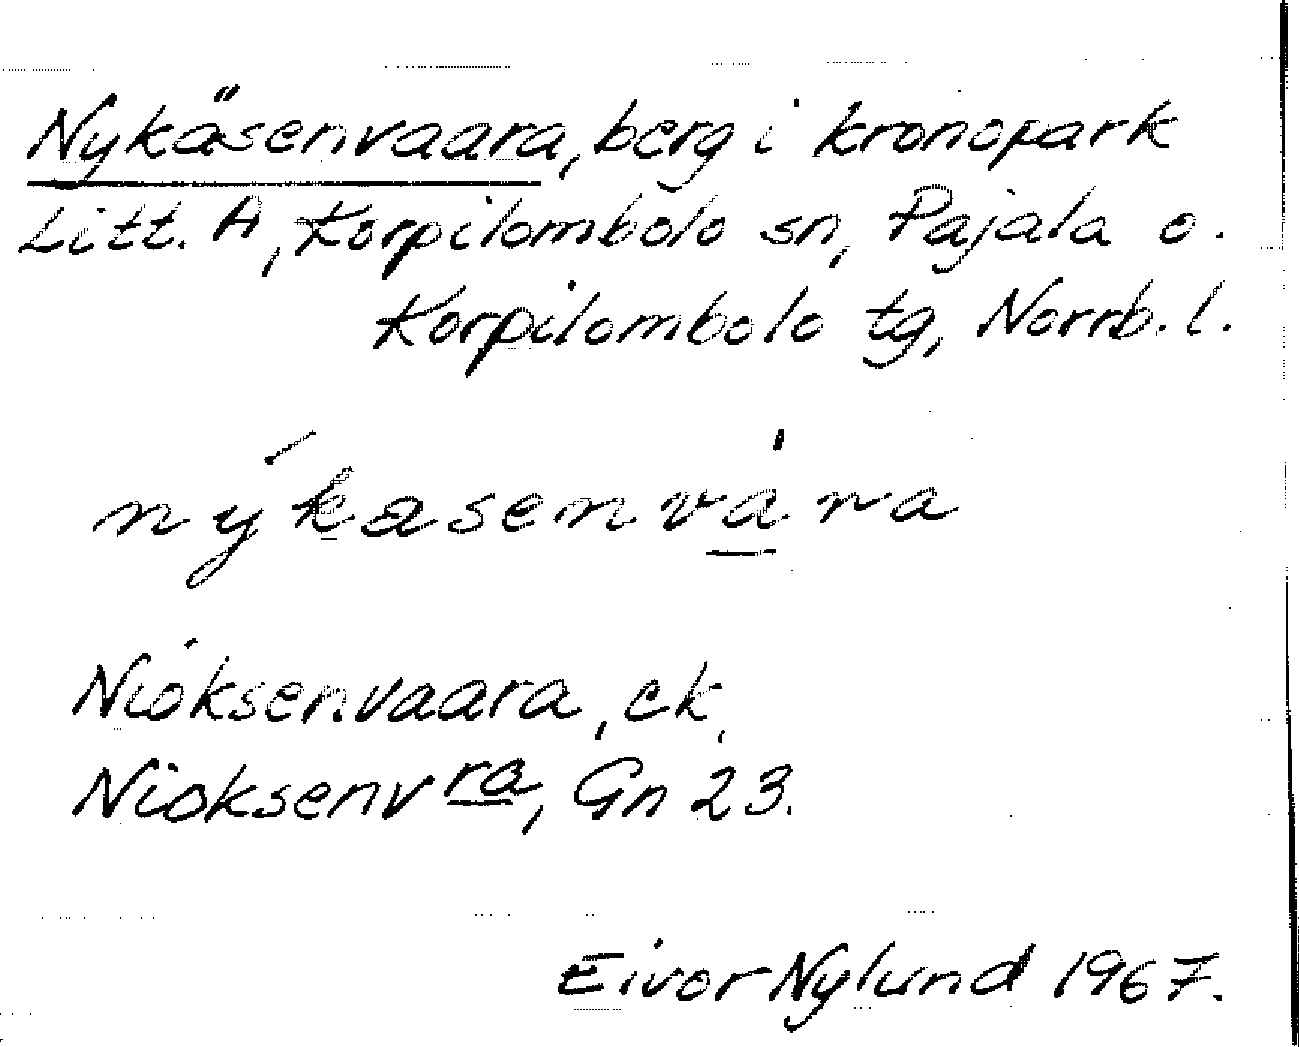 Nykäsenvaara, berg i kronopark
Litt. A, Korpilombolo sn, Pajala o.
Korpilombolo tg, Norrb. l.
nýkasenvàra
Nioksenvaara, ek,
Nioksenvra, Gn 23.
Eivor Nylund 1967.